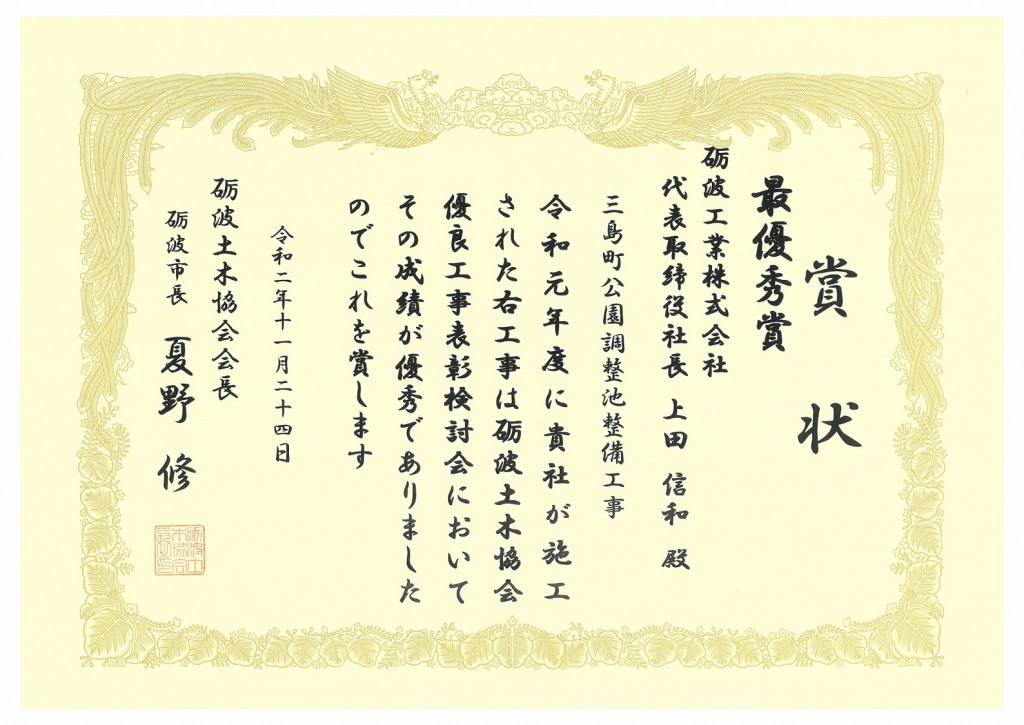 賞状
最優秀賞
砺波工業株式会社
代表取締役社長 上田 信和 殿
三島町公園調整池整備工事
令和元年度に貴社が施工
された右工事は砺波土木協会
優良工事表彰検討会において
その成績が優秀でありました
のでこれを賞します
令和二年十一月二十四日
砺波土木協会会長
砺波市長 夏野 修